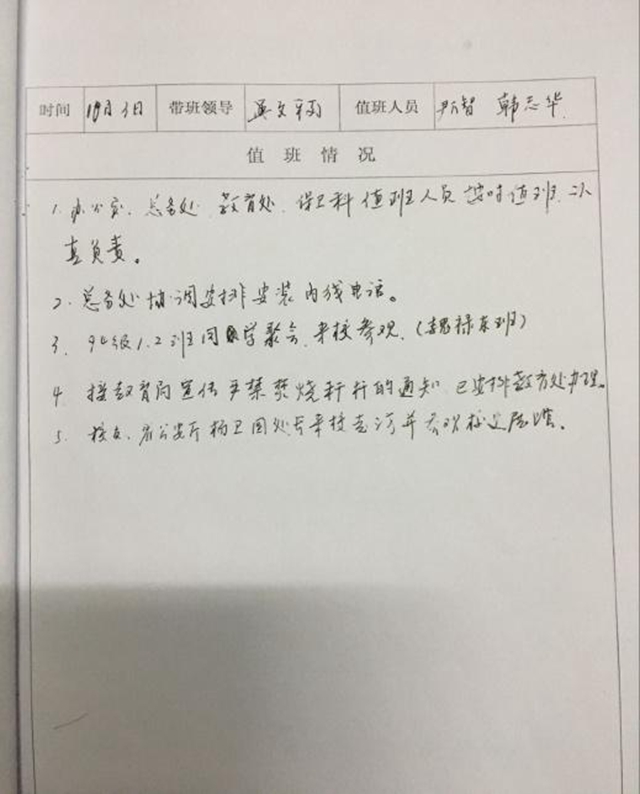 时间 10月3日 带班领导 值班人员 尹智 韩志华
值班情况
1. 办公室、总务处、教育处、保卫科值班人员按时值班, 认
真负责。
2. 总务处协调安排安装内线电话。
3. 94级1.2班同学聚会, 来校参观. (东班)
4. 接教育局宣传严禁焚烧秆的通知, 已安排教育处办理。
5. 校友、省公安厅杨卫国处长来校走访并参观校史展馆。